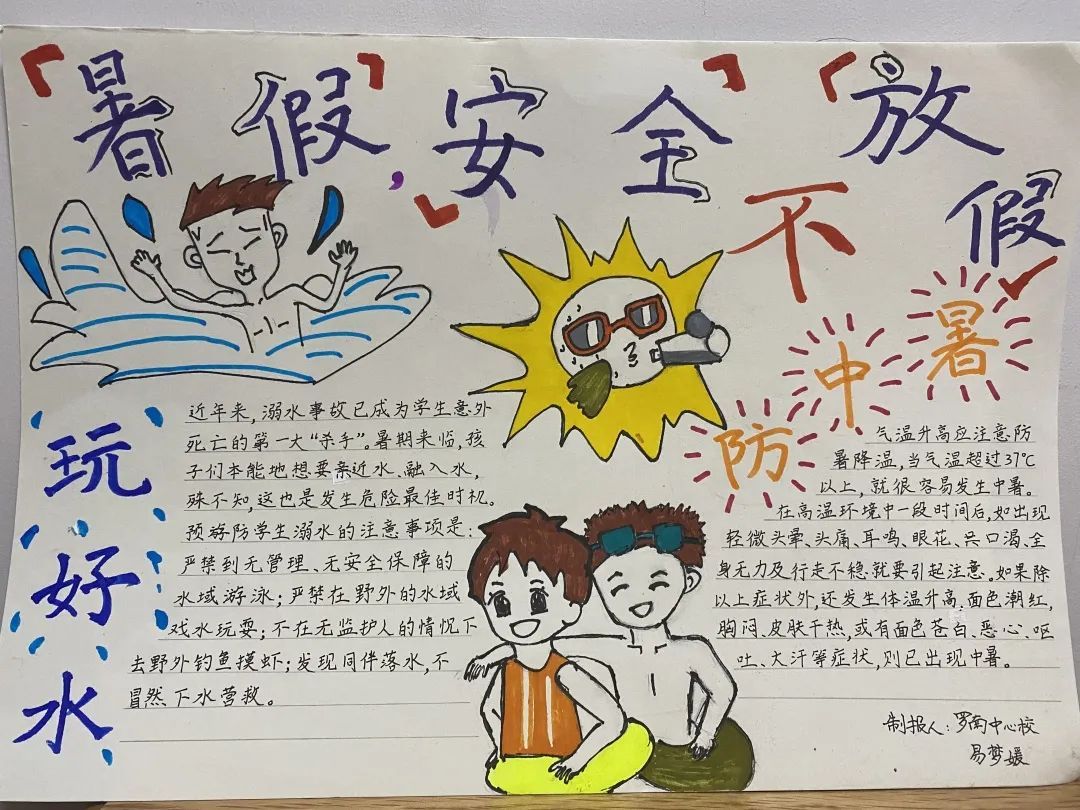 「暑假」，安全」「放
不假
玩好水
近年来，溺水事故已成为学生意外
死亡的第一大“杀手”。暑期来临，孩
子们本能地想要亲近水、融入水，
殊不知，这也是发生危险最佳时机。
预防学生溺水的注意事项是：
严禁到无管理、无安全保障的
水域游泳；严禁在野外的水域
戏水玩耍；不在无监护人的情况下
去野外钓鱼摸虾；发现同伴落水，不
冒然下水营救。
防中暑
气温升高应注意防
暑降温，当气温超过37℃
以上，就很容易发生中暑。
在高温环境中一段时间后，如出现
轻微头晕、头痛、耳鸣、眼花、口渴、全
身无力及行走不稳就要引起注意。如果除
以上症状外，还发生体温升高、面色潮红，
胸闷、皮肤干热，或有面色苍白、恶心、呕
吐、大汗等症状，则已出现中暑。
制报人：罗南中心校
易梦媛